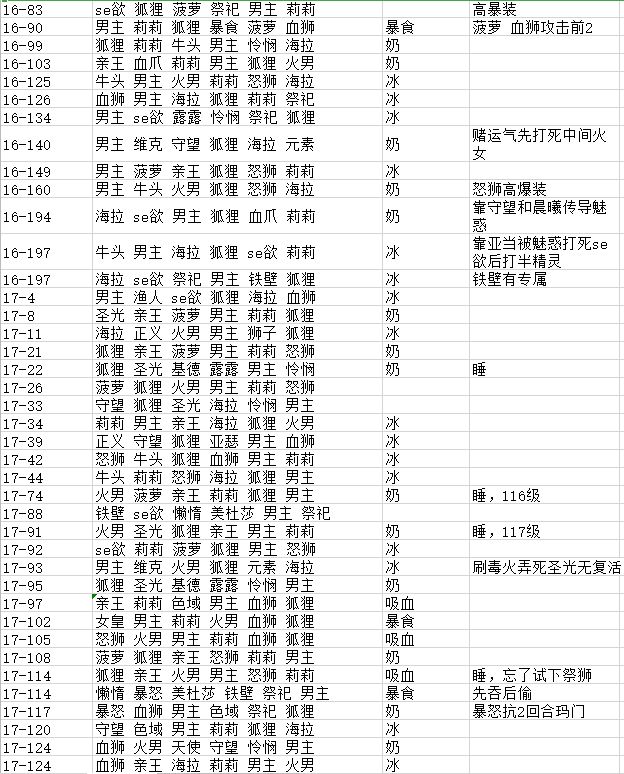 16-83 se欲 狐狸 菠萝 祭祀 男主 莉莉 高暴装
16-90 男主 莉莉 狐狸 暴食 菠萝 血狮 暴食 菠萝 血狮攻击前2
16-99 狐狸 莉莉 牛头 男主 怜悯 海拉 奶
16-103 亲王 血爪 莉莉 男主 狐狸 火男 奶
16-125 牛头 男主 火男 莉莉 怒狮 海拉 冰
16-126 血狮 男主 海拉 狐狸 莉莉 祭祀 冰
16-134 男主 se欲 露露 怜悯 祭祀 狐狸 冰
16-140 男主 维克 守望 狐狸 海拉 元素 奶 赌运气先打死中间火
女
16-149 男主 菠萝 亲王 狐狸 怒狮 莉莉 冰
16-160 男主 牛头 火男 狐狸 怒狮 海拉 奶 怒狮高爆装
16-194 海拉 se欲 男主 狐狸 血爪 莉莉 奶 靠守望和晨曦传导魅
惑
16-197 牛头 男主 海拉 狐狸 se欲 莉莉 冰 靠亚当被魅惑打死se
欲后打半精灵
16-197 海拉 se欲 祭祀 男主 铁壁 狐狸 冰 铁壁有专属
17-4 男主 渔人 se欲 狐狸 海拉 血狮 冰
17-8 圣光 亲王 菠萝 男主 莉莉 狐狸 奶
17-11 海拉 正义 火男 男主 狮子 狐狸 冰
17-21 狐狸 亲王 菠萝 男主 莉莉 怒狮 奶
17-22 狐狸 圣光 基德 露露 男主 怜悯 奶 睡
17-26 菠萝 狐狸 火男 男主 莉莉 怒狮
17-33 守望 狐狸 圣光 海拉 怜悯 男主
17-34 莉莉 男主 亲王 海拉 狐狸 火男 冰
17-39 正义 守望 狐狸 亚瑟 男主 血狮 冰
17-42 怒狮 牛头 狐狸 血狮 男主 莉莉 冰
17-44 牛头 莉莉 怒狮 海拉 狐狸 男主 冰
17-74 火男 菠萝 亲王 莉莉 狐狸 男主 奶 睡，116级
17-88 铁壁 se欲 懒惰 美杜莎 男主 祭祀
17-91 火男 圣光 狐狸 亲王 男主 莉莉 奶 睡，117级
17-92 se欲 莉莉 菠萝 狐狸 男主 怒狮 冰
17-93 男主 维克 火男 狐狸 元素 海拉 冰 刷毒火弄死圣光无复活
17-95 狐狸 圣光 基德 露露 怜悯 男主 奶
17-97 亲王 莉莉 色域 男主 血狮 狐狸 吸血
17-102 女皇 男主 莉莉 火男 血狮 狐狸 暴食
17-105 怒狮 火男 男主 莉莉 血狮 狐狸 吸血
17-108 菠萝 狐狸 亲王 怒狮 莉莉 男主 奶
17-114 狐狸 亲王 火男 男主 怒狮 莉莉 吸血 睡，忘了试下祭狮
17-114 懒惰 暴怒 美杜莎 铁壁 祭祀 男主 暴食 先吞后偷
17-117 暴怒 血狮 男主 色域 祭祀 狐狸 奶 暴怒抗2回合玛门
17-120 守望 色域 男主 莉莉 狐狸 海拉 冰
17-124 血狮 火男 天使 守望 怜悯 男主 奶
17-124 血狮 亲王 海拉 莉莉 男主 火男 冰